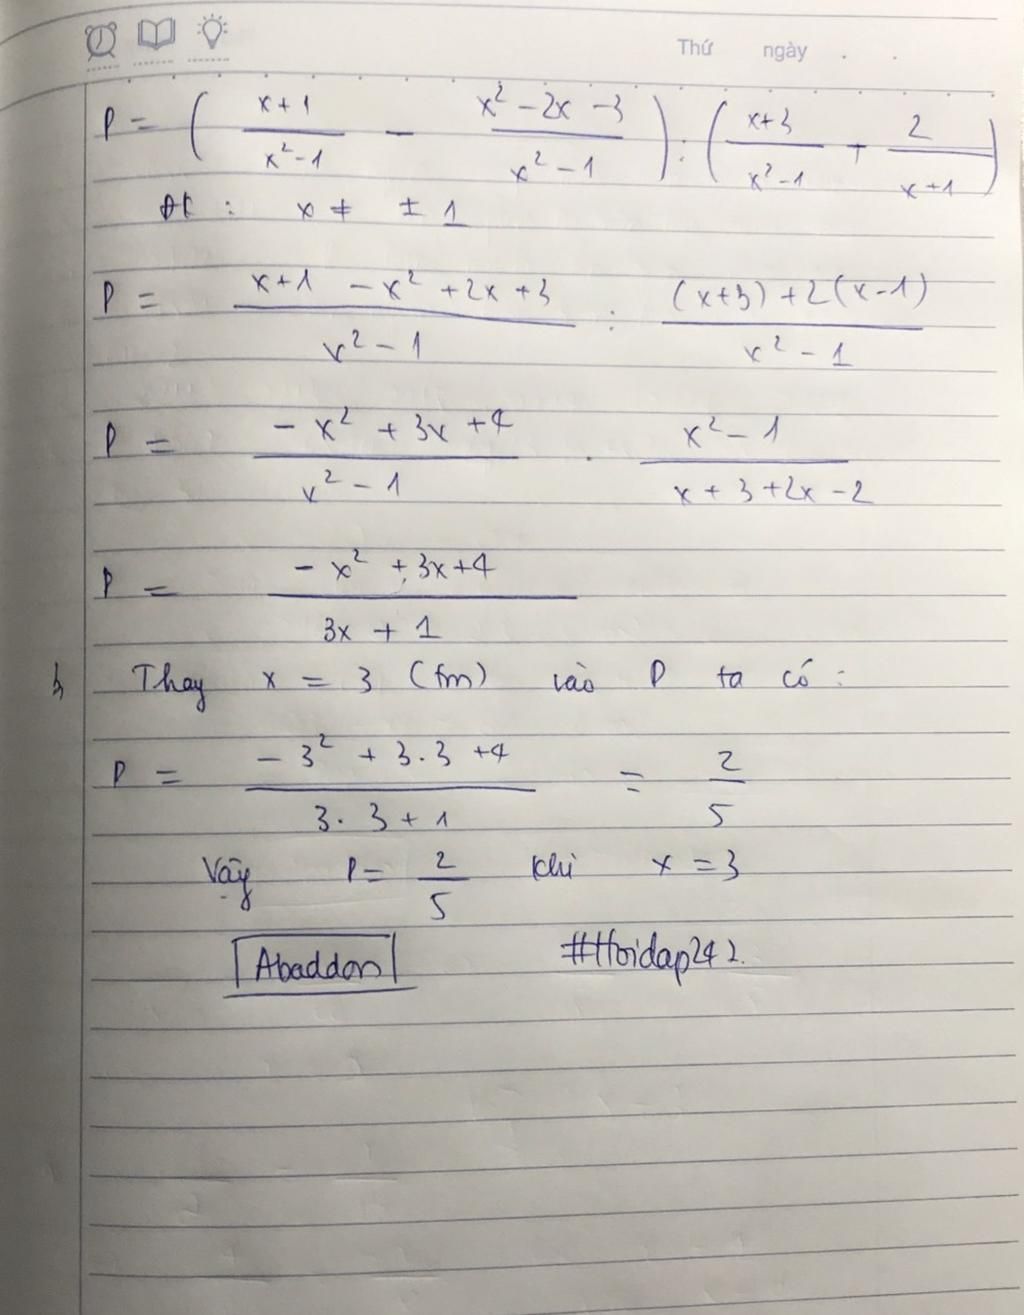 Thứ ngày . .
P = ( x+1 / x² - 1 - x² - 2x - 3 / x² - 1 ) : ( x+3 / x² - 1 + 2 / x+1 )
ĐK : x ≠ ± 1
P = x+1 - x² + 2x + 3 / x² - 1 : (x+3) + 2(x-1) / x² - 1
P = - x² + 3x + 4 / x² - 1 . x² - 1 / x + 3 + 2x - 2
P = - x² + 3x + 4 / 3x + 1
b, Thay x = 3 (tm) vào P ta có :
P = - 3² + 3.3 + 4 / 3.3 + 1 = 2 / 5
Vậy P = 2 / 5 khi x = 3
Abaddon #Hoidap242.